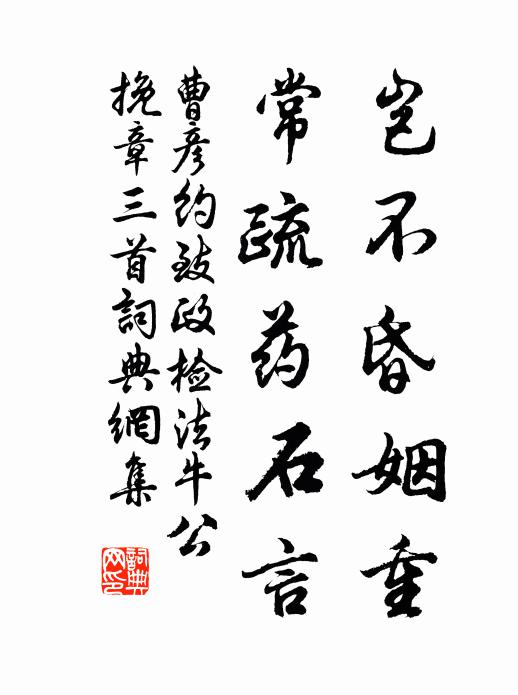 岂不昏姻重
常疏药石言
曹彦约致政检法牛公
挽章三首詞典網集
詞典网印